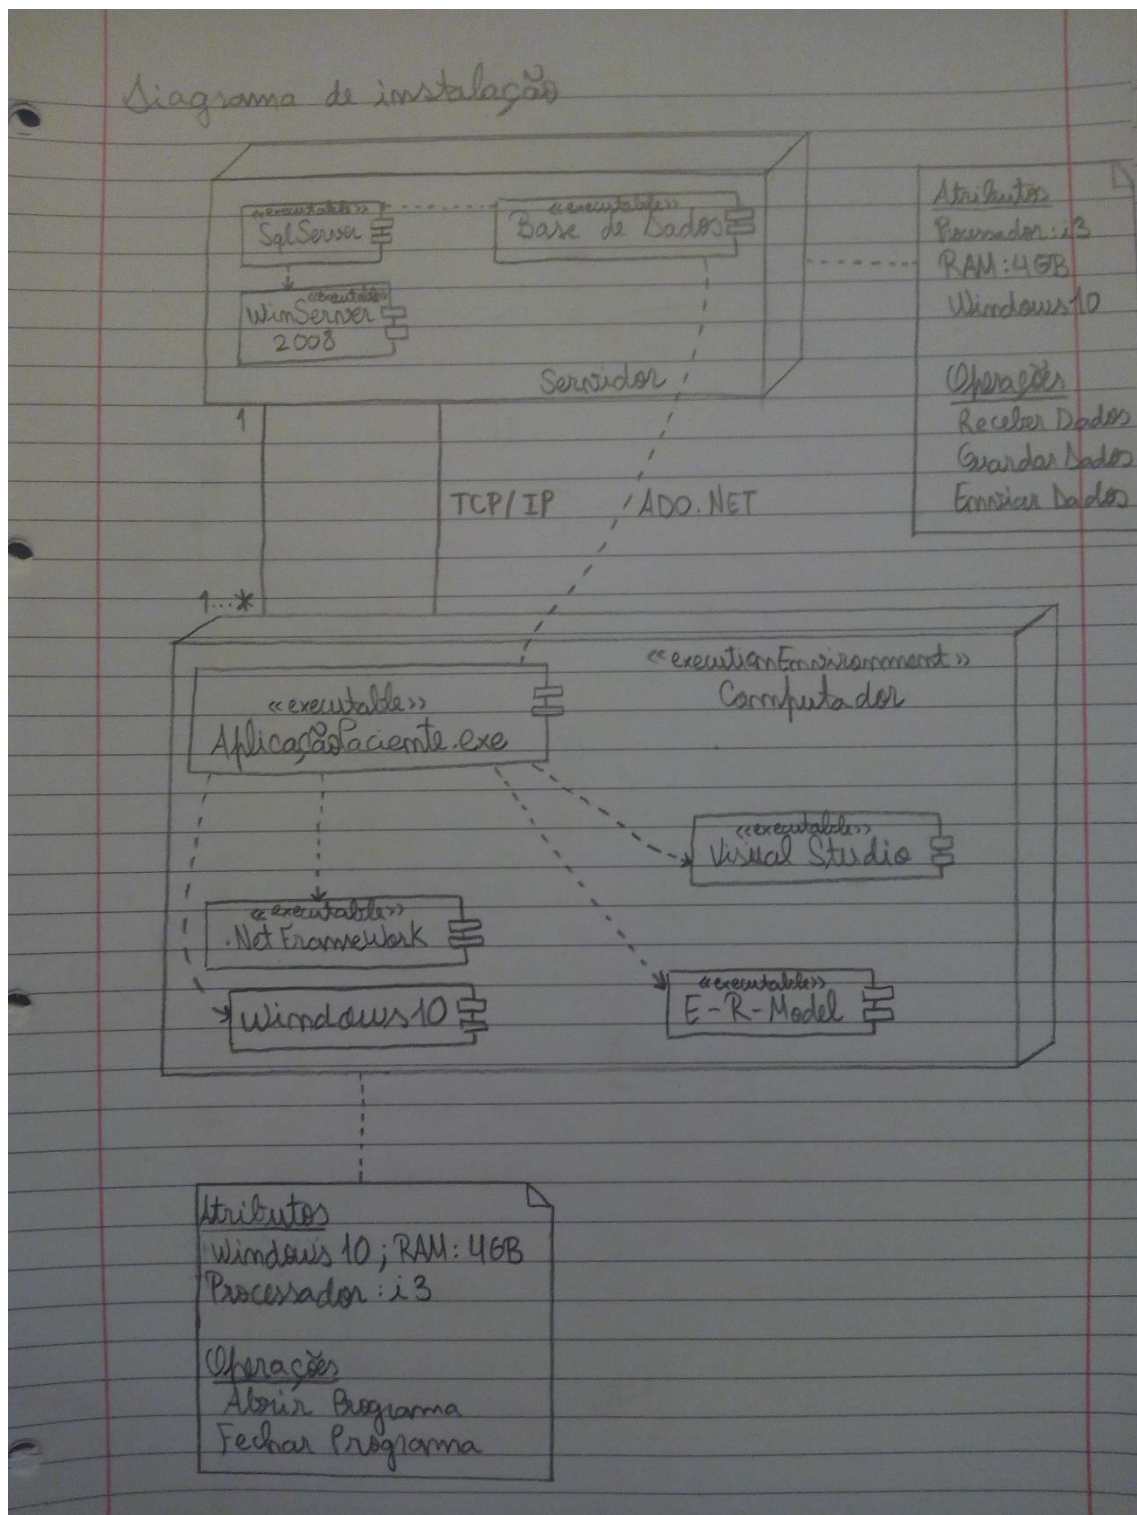 Diagrama de instalação
«executable»
SqlServer
«executable»
Base de Dados
«executable»
WinServer
2008
Servidor
Atributos
Processador: i3
RAM: 4GB
Windows 10
Operações
Receber Dados
Guardar Dados
Enviar Dados
1
TCP/IP
ADO.NET
1...*
«executionEnvironment»
Computador
«executable»
AplicaçãoPaciente.exe
«executable»
Visual Studio
«executable»
.Net FrameWork
«executable»
E-R-Model
Windows10
Atributos
Windows 10; RAM: 4GB
Processador: i3
Operações
Abrir Programa
Fechar Programa